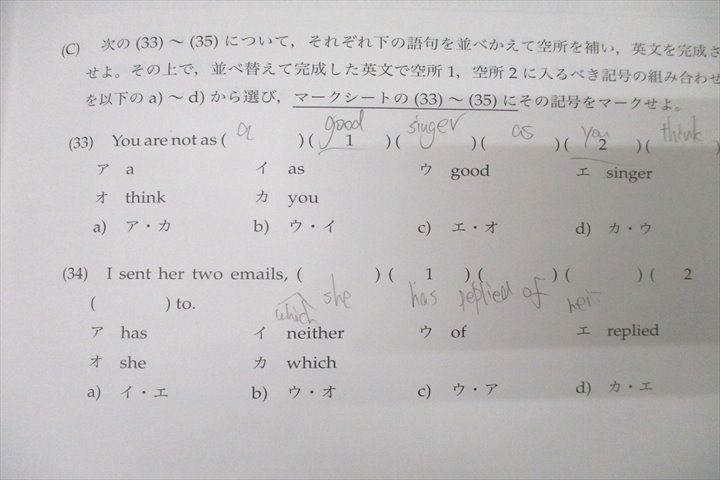 (C) 次の (33) ～ (35) について，それぞれ下の語句を並べかえて空所を補い，英文を完成さ
せよ。その上で，並べ替えて完成した英文で空所 1，空所 2 に入るべき記号の組み合わせ
を以下の a) ～ d) から選び，マークシートの (33) ～ (35) にその記号をマークせよ。
a good singer as you think
(33) You are not as ( )( 1 )( )( )( 2 )( )
ア a イ as ウ good エ singer
オ think カ you
a) ア・カ b) ウ・イ c) エ・オ d) カ・ウ
(34) I sent her two emails, ( )( 1 )( )( )( 2
( ) to.
which she has replied of
ア has イ neither ウ of エ replied
オ she カ which
a) イ・エ b) ウ・オ c) ウ・ア d) カ・エ